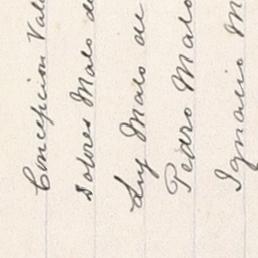 Concepcion Val
Dolores Malo de
Luz Malo de
Pedro Malo
Ignacio M